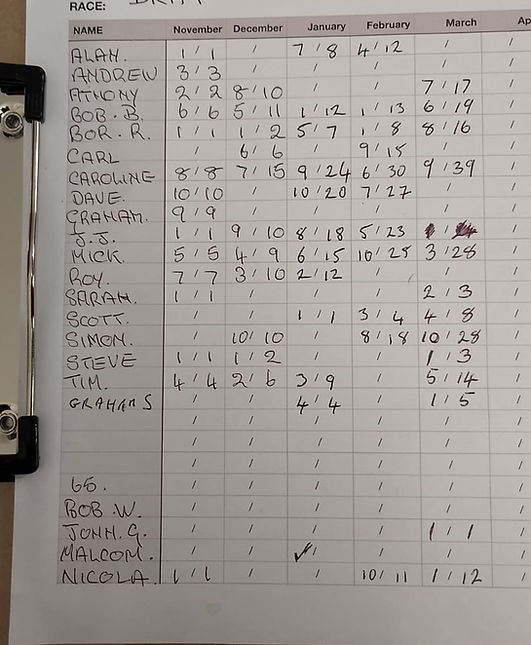 RACE:
NAME November December January February March Ap
ALAN. 1/1 / 7/8 4/12 / /
ANDREW 3/3 / / / / /
ATHONY 2/2 8/10 / / 7/17 /
BOB.B. 6/6 5/11 1/12 1/13 6/19 /
BOB.R. 1/1 1/2 5/7 1/8 8/16 /
CARL / 6/6 / 9/15 / /
CAROLINE 8/8 7/15 9/24 6/30 9/39 /
DAVE. 10/10 / 10/20 7/27 / /
GRAHAM. 9/9 / / / / /
J.J. 1/1 9/10 8/18 5/23 / /
MICK. 5/5 4/9 6/15 10/25 3/28 /
ROY. 7/7 3/10 2/12 / / /
SARAH. 1/1 / / / 2/3 /
SCOTT. / / 1/1 3/4 4/8 /
SIMON. / 10/10 / 8/18 10/28 /
STEVE 1/1 1/2 / / 1/3 /
TIM. 4/4 2/6 3/9 / 5/14 /
GRAHAM S / / 4/4 / 1/5 /
/ / / / / /
/ / / / / /
/ / / / / /
65. / / / / / /
BOB.W. / / / / / /
JOHN.G. / / / / 1/1 /
MALCOM. / / ✓/ / / /
NICOLA. 1/1 / / 10/11 1/12 /